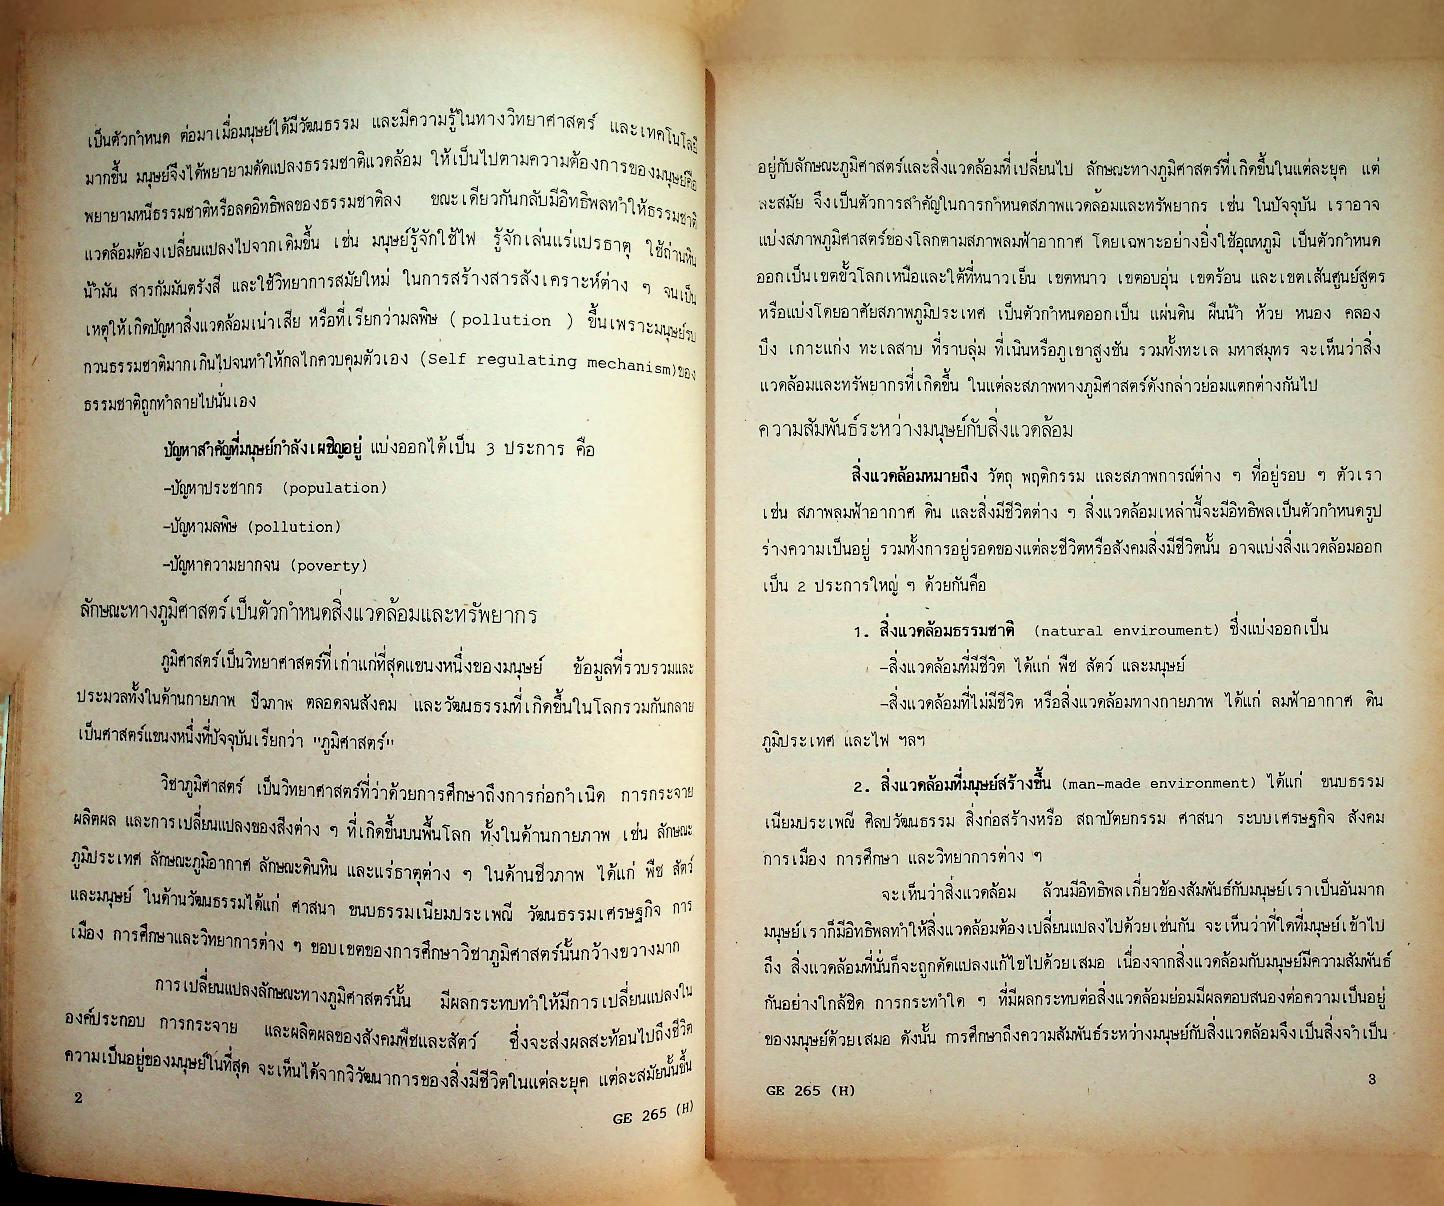 เป็นตัวกำหนด ต่อมาเมื่อมนุษย์ได้มีวัฒนธรรม และมีความรู้ในทางวิทยาศาสตร์ และเทคโนโลยี
มากขึ้น มนุษย์จึงได้พยายามดัดแปลงธรรมชาติแวดล้อม ให้เป็นไปตามความต้องการของมนุษย์คือ
พยายามหนีธรรมชาติหรือลดอิทธิพลของธรรมชาติลง ขณะเดียวกันกลับมีอิทธิพลทำให้ธรรมชาติ
แวดล้อมต้องเปลี่ยนแปลงไปจากเดิมขึ้น เช่น มนุษย์รู้จักใช้ไฟ รู้จักเล่นแร่แปรธาตุ ใช้ถ่านหิน
น้ำมัน สารกัมมันตรังสี และใช้วิทยาการสมัยใหม่ ในการสร้างสารสังเคราะห์ต่าง ๆ จนเป็น
เหตุให้เกิดปัญหาสิ่งแวดล้อมเน่าเสีย หรือที่เรียกว่ามลพิษ ( pollution ) ขึ้นเพราะมนุษย์รบ
กวนธรรมชาติมากเกินไปจนทำให้กลไกควบคุมตัวเอง (Self regulating mechanism)ของ
ธรรมชาติถูกทำลายไปนั่นเอง
ปัญหาสำคัญที่มนุษย์กำลังเผชิญอยู่ แบ่งออกได้เป็น 3 ประการ คือ
-ปัญหาประชากร (population)
-ปัญหามลพิษ (pollution)
-ปัญหาความยากจน (poverty)
ลักษณะทางภูมิศาสตร์เป็นตัวกำหนดสิ่งแวดล้อมและทรัพยากร
ภูมิศาสตร์เป็นวิทยาศาสตร์ที่เก่าแก่ที่สุดแขนงหนึ่งของมนุษย์ ข้อมูลที่รวบรวมและ
ประมวลทั้งในด้านกายภาพ ชีวภาพ ตลอดจนสังคม และวัฒนธรรมที่เกิดขึ้นในโลกรวมกันกลาย
เป็นศาสตร์แขนงหนึ่งที่ปัจจุบันเรียกว่า "ภูมิศาสตร์"
วิชาภูมิศาสตร์ เป็นวิทยาศาสตร์ที่ว่าด้วยการศึกษาถึงการก่อกำเนิด การกระจาย
ผลิตผล และการเปลี่ยนแปลงของสิ่งต่าง ๆ ที่เกิดขึ้นบนพื้นโลก ทั้งในด้านกายภาพ เช่น ลักษณะ
ภูมิประเทศ ลักษณะภูมิอากาศ ลักษณะดินหิน และแร่ธาตุต่าง ๆ ในด้านชีวภาพ ได้แก่ พืช สัตว์
และมนุษย์ ในด้านวัฒนธรรมได้แก่ ศาสนา ขนบธรรมเนียมประเพณี วัฒนธรรมเศรษฐกิจ การ
เมือง การศึกษาและวิทยาการต่าง ๆ ขอบเขตของการศึกษาวิชาภูมิศาสตร์นั้นกว้างขวางมาก
การเปลี่ยนแปลงลักษณะทางภูมิศาสตร์นั้น มีผลกระทบทำให้มีการเปลี่ยนแปลงใน
องค์ประกอบ การกระจาย และผลิตผลของสังคมพืชและสัตว์ ซึ่งจะส่งผลสะท้อนไปถึงชีวิต
ความเป็นอยู่ของมนุษย์ในที่สุด จะเห็นได้จากวิวัฒนาการของสิ่งมีชีวิตในแต่ละยุค แต่ละสมัยนั้นขึ้น
2
GE 265 (H)
อยู่กับลักษณะภูมิศาสตร์และสิ่งแวดล้อมที่เปลี่ยนไป ลักษณะทางภูมิศาสตร์ที่เกิดขึ้นในแต่ละยุค แต่
ละสมัย จึงเป็นตัวการสำคัญในการกำหนดสภาพแวดล้อมและทรัพยากร เช่น ในปัจจุบัน เราอาจ
แบ่งสภาพภูมิศาสตร์ของโลกตามสภาพลมฟ้าอากาศ โดยเฉพาะอย่างยิ่งใช้อุณหภูมิ เป็นตัวกำหนด
ออกเป็นเขตขั้วโลกเหนือและใต้ที่หนาวเย็น เขตหนาว เขตอบอุ่น เขตร้อน และเขตเส้นศูนย์สูตร
หรือแบ่งโดยอาศัยสภาพภูมิประเทศ เป็นตัวกำหนดออกเป็น แผ่นดิน ผืนน้ำ ห้วย หนอง คลอง
บึง เกาะแก่ง ทะเลสาบ ที่ราบลุ่ม ที่เนินหรือภูเขาสูงชัน รวมทั้งทะเล มหาสมุทร จะเห็นว่าสิ่ง
แวดล้อมและทรัพยากรที่เกิดขึ้น ในแต่ละสภาพทางภูมิศาสตร์ดังกล่าวย่อมแตกต่างกันไป
ความสัมพันธ์ระหว่างมนุษย์กับสิ่งแวดล้อม
สิ่งแวดล้อมหมายถึง วัตถุ พฤติกรรม และสภาพการณ์ต่าง ๆ ที่อยู่รอบ ๆ ตัวเรา
เช่น สภาพลมฟ้าอากาศ ดิน และสิ่งมีชีวิตต่าง ๆ สิ่งแวดล้อมเหล่านี้จะมีอิทธิพลเป็นตัวกำหนดรูป
ร่างความเป็นอยู่ รวมทั้งการอยู่รอดของแต่ละชีวิตหรือสังคมสิ่งมีชีวิตนั้น อาจแบ่งสิ่งแวดล้อมออก
เป็น 2 ประการใหญ่ ๆ ด้วยกันคือ
1. สิ่งแวดล้อมธรรมชาติ (natural enviroument) ซึ่งแบ่งออกเป็น
-สิ่งแวดล้อมที่มีชีวิต ได้แก่ พืช สัตว์ และมนุษย์
-สิ่งแวดล้อมที่ไม่มีชีวิต หรือสิ่งแวดล้อมทางกายภาพ ได้แก่ ลมฟ้าอากาศ ดิน
ภูมิประเทศ และไฟ ฯลฯ
2. สิ่งแวดล้อมที่มนุษย์สร้างขึ้น (man-made environment) ได้แก่ ขนบธรรม
เนียมประเพณี ศิลปวัฒนธรรม สิ่งก่อสร้างหรือ สถาปัตยกรรม ศาสนา ระบบเศรษฐกิจ สังคม
การเมือง การศึกษา และวิทยาการต่าง ๆ
จะเห็นว่าสิ่งแวดล้อม ล้วนมีอิทธิพลเกี่ยวข้องสัมพันธ์กับมนุษย์เราเป็นอันมาก
มนุษย์เราก็มีอิทธิพลทำให้สิ่งแวดล้อมต้องเปลี่ยนแปลงไปด้วยเช่นกัน จะเห็นว่าที่ใดที่มนุษย์เข้าไป
ถึง สิ่งแวดล้อมที่นั่นก็จะถูกดัดแปลงแก้ไขไปด้วยเสมอ เนื่องจากสิ่งแวดล้อมกับมนุษย์มีความสัมพันธ์
กันอย่างใกล้ชิด การกระทำใด ๆ ที่มีผลกระทบต่อสิ่งแวดล้อมย่อมมีผลตอบสนองต่อความเป็นอยู่
ของมนุษย์ด้วยเสมอ ดังนั้น การศึกษาถึงความสัมพันธ์ระหว่างมนุษย์กับสิ่งแวดล้อมจึงเป็นสิ่งจำเป็น
GE 265 (H)
3